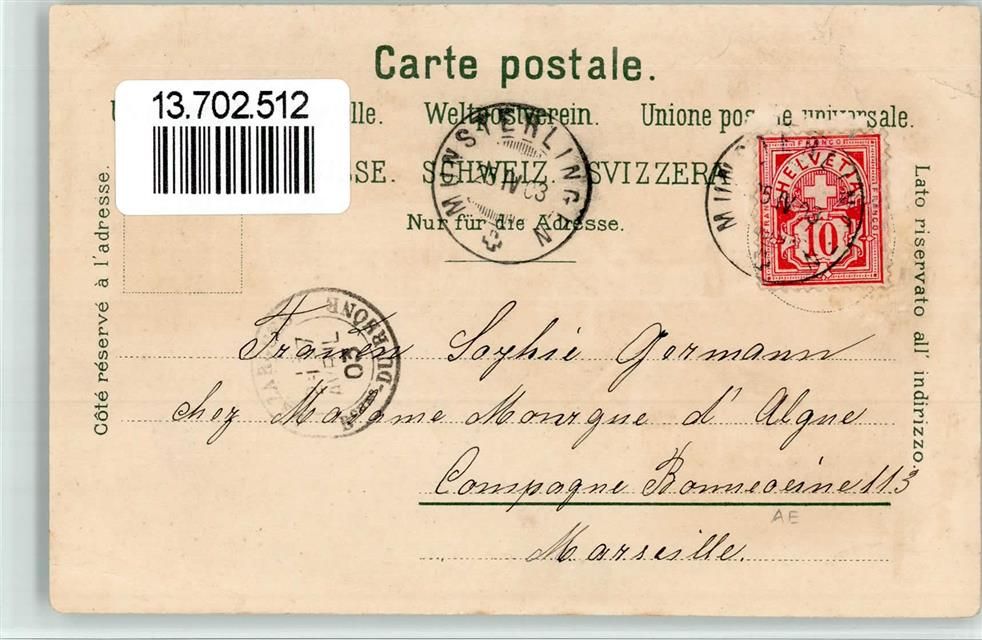 Carte postale.
13.702.512
lle. Weltpostverein. Unione universale.
SSE. SCHWEIZ. SVIZZERA
Nur für die Adresse.
MÜNSTERLINGEN
IV 03
HELVETIA
FRANCO
10
Côté réservé à l'adresse.
Lato riservato all' indirizzo.
AVRIL
03
Fräulein Sophie Germann
chez Madame Mourgue d' Algue
Compagne Bonneveine 113
AE
Marseille.